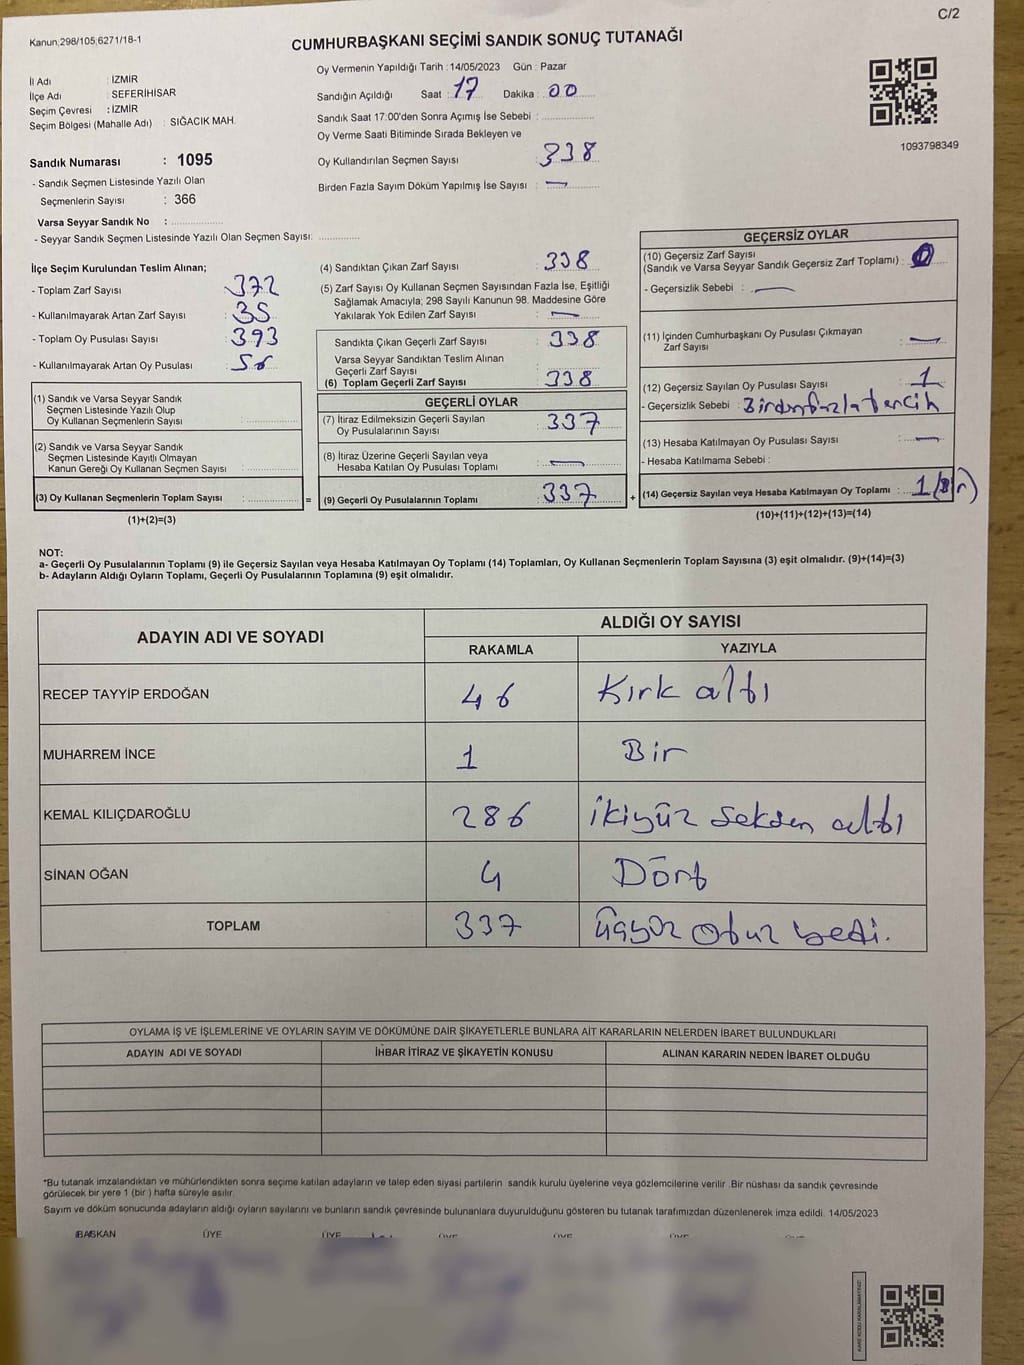 C/2
Kanun;298/105;6271/18-1
CUMHURBAŞKANI SEÇİMİ SANDIK SONUÇ TUTANAĞI
İl Adı : İZMİR
İlçe Adı : SEFERİHİSAR
Seçim Çevresi : İZMİR
Seçim Bölgesi (Mahalle Adı) : SIĞACIK MAH.
Sandık Numarası : 1095
- Sandık Seçmen Listesinde Yazılı Olan
Seçmenlerin Sayısı : 366
Varsa Seyyar Sandık No :
- Seyyar Sandık Seçmen Listesinde Yazılı Olan Seçmen Sayısı:
Oy Vermenin Yapıldığı Tarih : 14/05/2023 Gün : Pazar
Sandığın Açıldığı Saat : 17 Dakika : 00
Sandık Saat 17:00'den Sonra Açımış İse Sebebi :
Oy Verme Saati Bitiminde Sırada Bekleyen ve
Oy Kullandırılan Seçmen Sayısı : 338
Birden Fazla Sayım Döküm Yapılmış İse Sayısı : —
1093798349
İlçe Seçim Kurulundan Teslim Alınan;
- Toplam Zarf Sayısı : 372
- Kullanılmayarak Artan Zarf Sayısı : 35
- Toplam Oy Pusulası Sayısı : 393
- Kullanılmayarak Artan Oy Pusulası :
(1) Sandık ve Varsa Seyyar Sandık
Seçmen Listesinde Yazılı Olup
Oy Kullanan Seçmenlerin Sayısı :
(2) Sandık ve Varsa Seyyar Sandık
Seçmen Listesinde Kayıtlı Olmayan
Kanun Gereği Oy Kullanan Seçmen Sayısı :
(3) Oy Kullanan Seçmenlerin Toplam Sayısı :
(1)+(2)=(3)
=
(4) Sandıktan Çıkan Zarf Sayısı : 338
(5) Zarf Sayısı Oy Kullanan Seçmen Sayısından Fazla İse, Eşitliği
Sağlamak Amacıyla; 298 Sayılı Kanunun 98. Maddesine Göre
Yakılarak Yok Edilen Zarf Sayısı : —
Sandıkta Çıkan Geçerli Zarf Sayısı : 338
Varsa Seyyar Sandıktan Teslim Alınan
Geçerli Zarf Sayısı :
(6) Toplam Geçerli Zarf Sayısı : 338
GEÇERLİ OYLAR
(7) İtiraz Edilmeksizin Geçerli Sayılan
Oy Pusulalarının Sayısı : 337
(8) İtiraz Üzerine Geçerli Sayılan veya
Hesaba Katılan Oy Pusulası Toplamı : —
(9) Geçerli Oy Pusulalarının Toplamı : 337
+
GEÇERSİZ OYLAR
(10) Geçersiz Zarf Sayısı
(Sandık ve Varsa Seyyar Sandık Geçersiz Zarf Toplamı) : 0
- Geçersizlik Sebebi : —
(11) İçinden Cumhurbaşkanı Oy Pusulası Çıkmayan
Zarf Sayısı : —
(12) Geçersiz Sayılan Oy Pusulası Sayısı : 1
- Geçersizlik Sebebi : Birden fazla tercih
(13) Hesaba Katılmayan Oy Pusulası Sayısı : —
- Hesaba Katılmama Sebebi :
(14) Geçersiz Sayılan veya Hesaba Katılmayan Oy Toplamı : 1
(10)+(11)+(12)+(13)=(14)
NOT:
a- Geçerli Oy Pusulalarının Toplamı (9) ile Geçersiz Sayılan veya Hesaba Katılmayan Oy Toplamı (14) Toplamları, Oy Kullanan Seçmenlerin Toplam Sayısına (3) eşit olmalıdır. (9)+(14)=(3)
b- Adayların Aldığı Oyların Toplamı, Geçerli Oy Pusulalarının Toplamına (9) eşit olmalıdır.
ADAYIN ADI VE SOYADI
ALDIĞI OY SAYISI
RAKAMLA YAZIYLA
RECEP TAYYİP ERDOĞAN 46 Kırk altı
MUHARREM İNCE 1 Bir
KEMAL KILIÇDAROĞLU 286 İkiyüz seksen altı
SİNAN OĞAN 4 Dört
TOPLAM 337 üçyüz otuz yedi.
OYLAMA İŞ VE İŞLEMLERİNE VE OYLARIN SAYIM VE DÖKÜMÜNE DAİR ŞİKAYETLERLE BUNLARA AİT KARARLARIN NELERDEN İBARET BULUNDUKLARI
ADAYIN ADI VE SOYADI İHBAR İTİRAZ VE ŞİKAYETİN KONUSU ALINAN KARARIN NEDEN İBARET OLDUĞU
*Bu tutanak imzalandıktan ve mühürlendikten sonra seçime katılan adayların ve talep eden siyasi partilerin sandık kurulu üyelerine veya gözlemcilerine verilir .Bir nüshası da sandık çevresinde
görülecek bir yere 1 (bir ) hafta süreyle asılır.
Sayım ve döküm sonucunda adayların aldığı oyların sayılarını ve bunların sandık çevresinde bulunanlara duyurulduğunu gösteren bu tutanak tarafımızdan düzenlenerek imza edildi. 14/05/2023
BAŞKAN ÜYE ÜYE